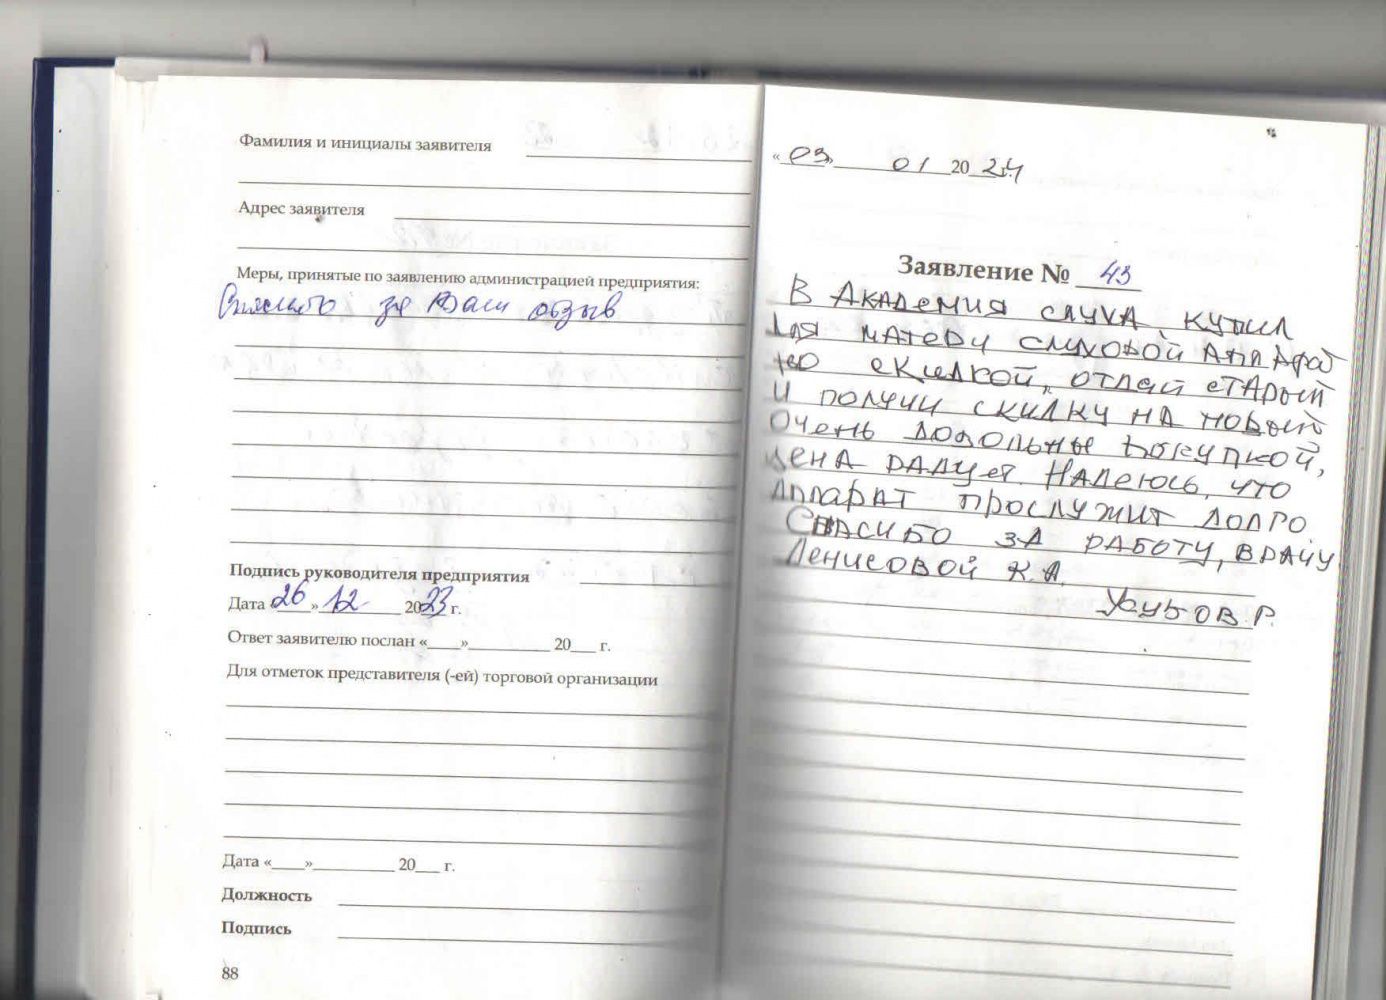 Фамилия и инициалы заявителя
Адрес заявителя
Меры, принятые по заявлению администрацией предприятия:
за Ваш отзыв
Подпись руководителя предприятия
Дата «26» 12 2023 г.
Ответ заявителю послан «___»_________ 20___ г.
Для отметок представителя (-ей) торговой организации
Дата «___»_________ 20___ г.
Должность
Подпись
88
«03» 01 2024 г.
Заявление № 43
В Академия слуха купил
для матери слуховой аппарат
по скидкой, отдай старый
и получи скидку на новый
Очень довольны покупкой,
цена радует. Надеюсь, что
аппарат прослужит долго.
Спасибо за работу, врачу
Денисовой К.А.